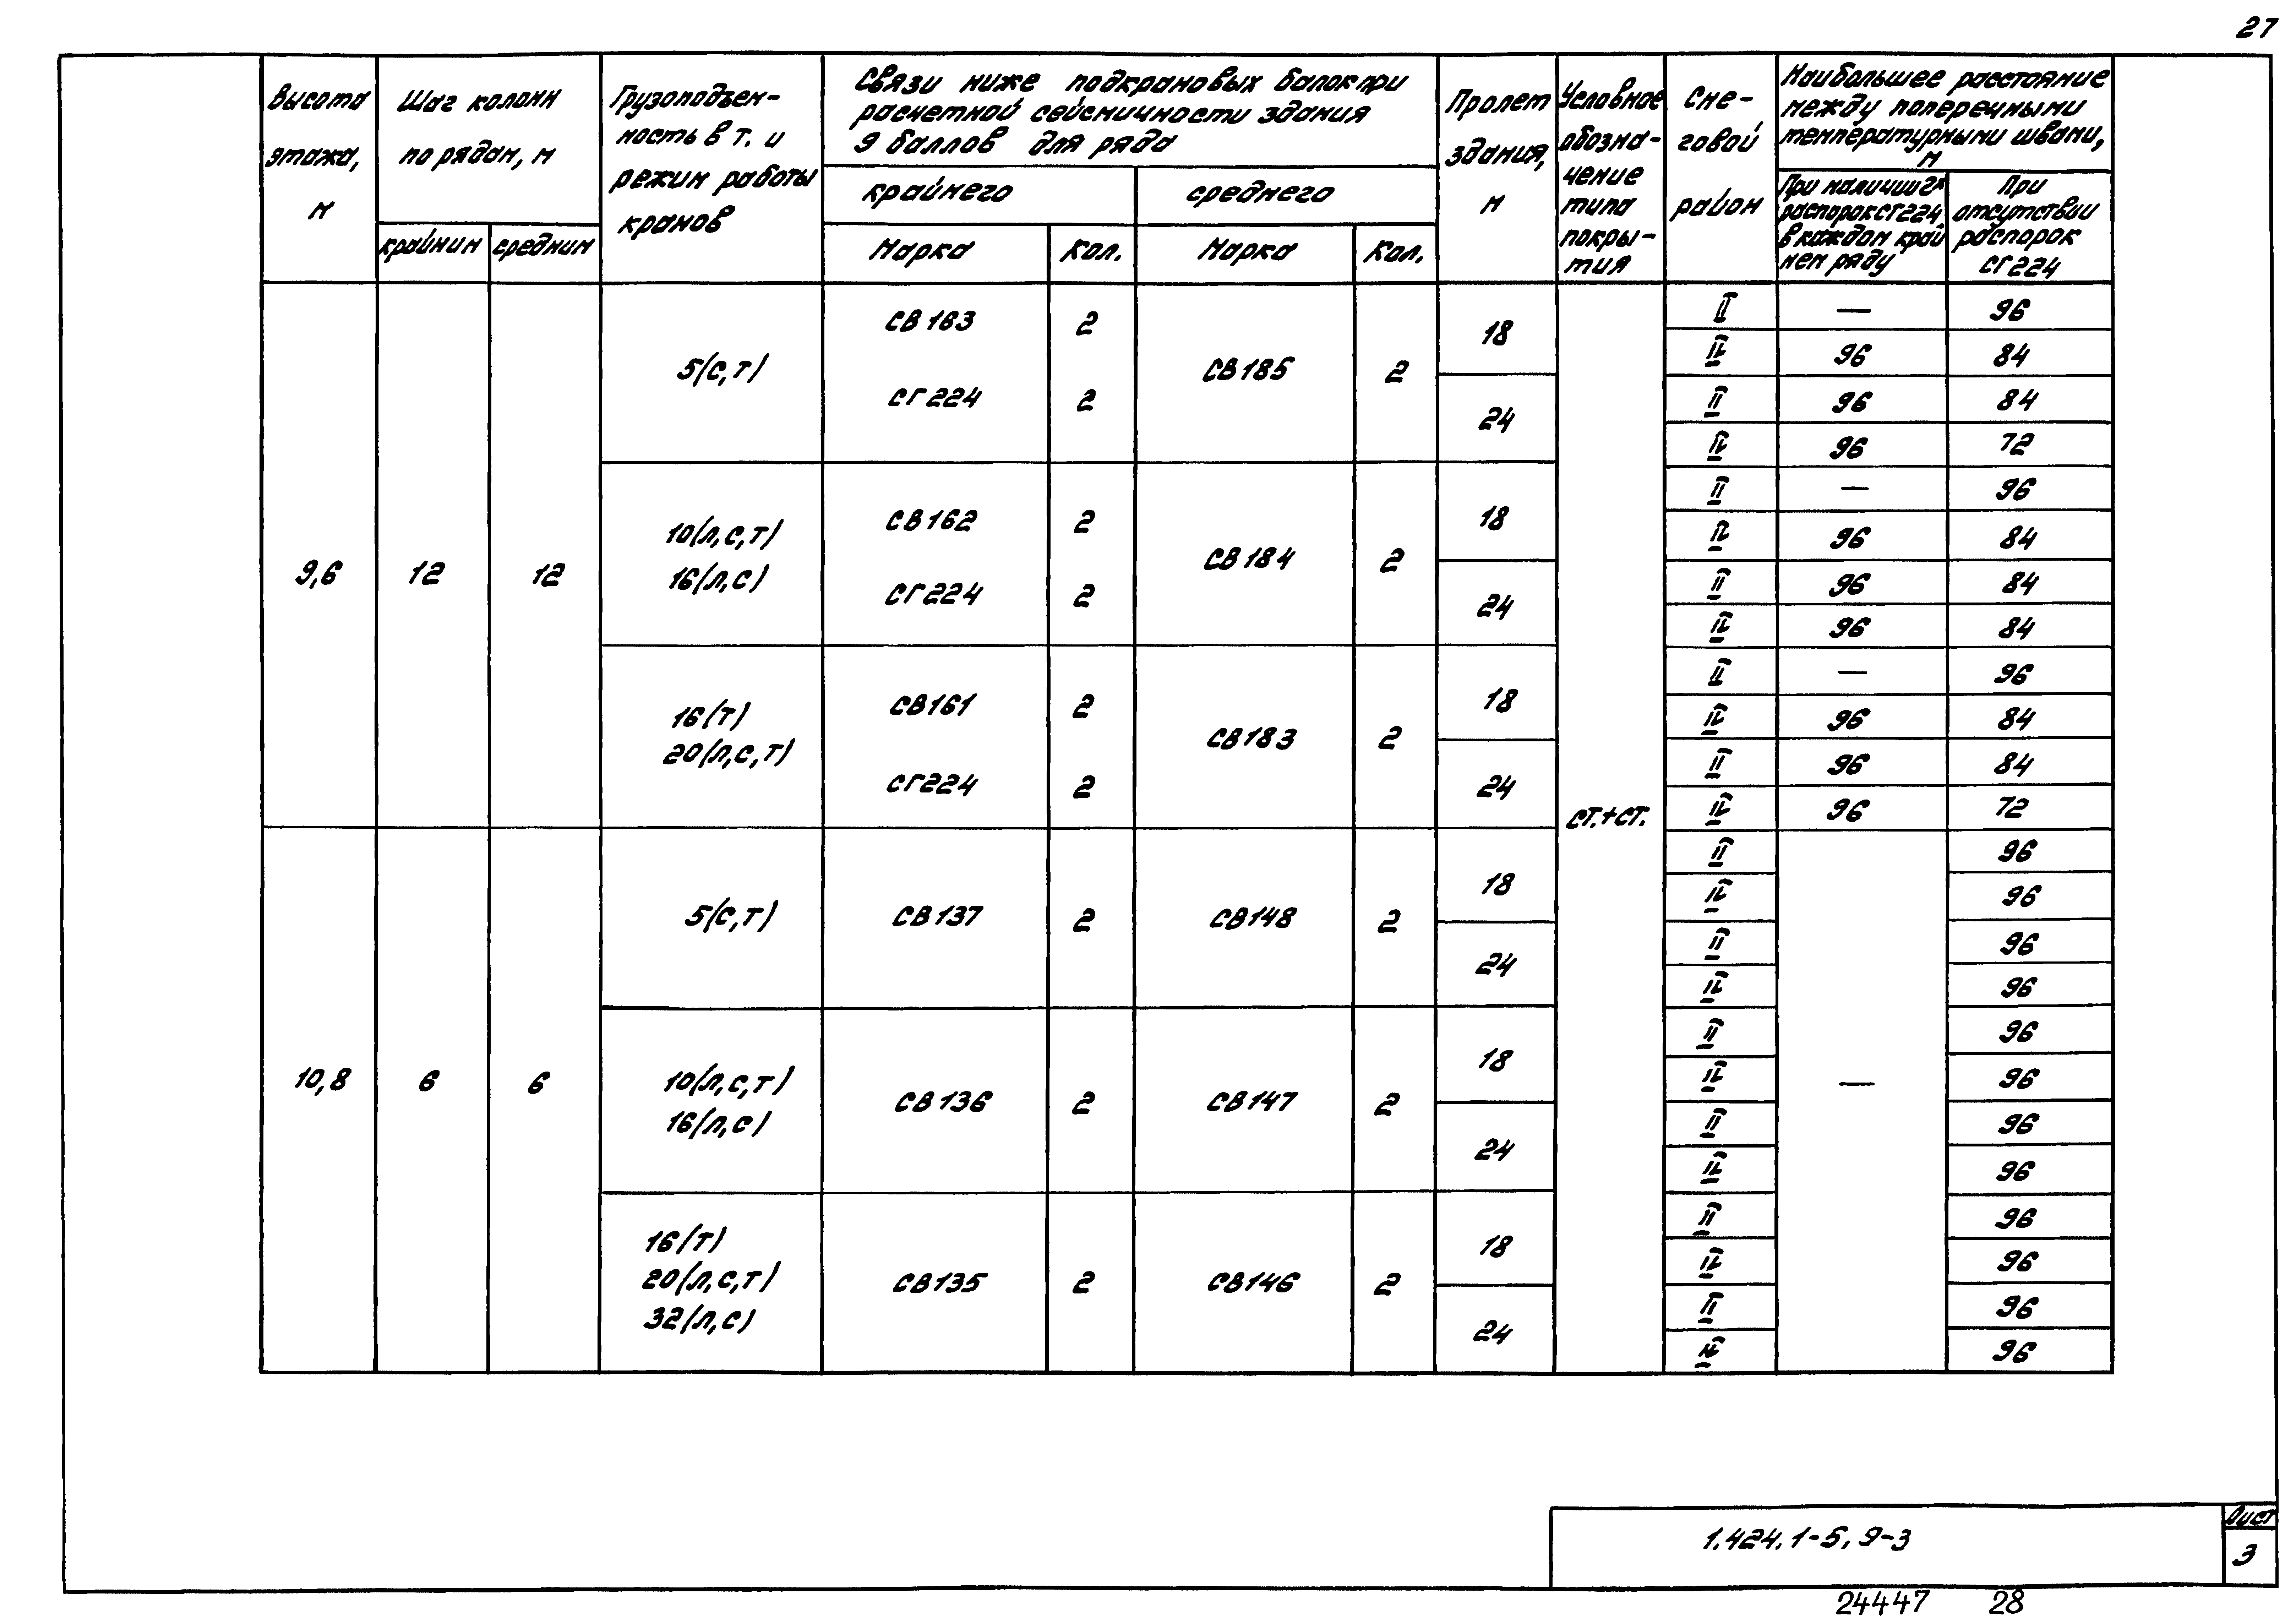 27
Высота этажа, м
Шаг колонн по рядам, м
крайним
средним
Грузоподъем-
ность в т. и
режим работы
кранов
Связи ниже подкрановых балок при
расчетной сейсмичности здания
9 баллов для ряда
крайнего
среднего
Марка
Кол.
Марка
Кол.
Пролет здания, м
Условное
обозна-
чение
типа
покры-
тия
Сне-
говой
район
Наибольшее расстояние
между поперечными
температурными швами,
м
При наличии 2х
распорок СГ224
в каждом край
нем ряду
При
отсутствии
распорок
СГ224
9,6 12 12
ст.+ст.
5(с,т)
СВ163 2
СГ224 2
СВ185 2
18
II — 96
IV 96 84
24
II 96 84
IV 96 72
10(л,с,т)
16(л,с)
СВ162 2
СГ224 2
СВ184 2
18
II — 96
IV 96 84
24
II 96 84
IV 96 84
16(т)
20(л,с,т)
СВ161 2
СГ224 2
СВ183 2
18
II — 96
IV 96 84
24
II 96 84
IV 96 72
10,8 6 6
—
5(с,т)
СВ137 2
СВ148 2
18
II 96
IV 96
24
II 96
IV 96
10(л,с,т)
16(л,с)
СВ136 2
СВ147 2
18
II 96
IV 96
24
II 96
IV 96
16(т)
20(л,с,т)
32(л,с)
СВ135 2
СВ146 2
18
II 96
IV 96
24
II 96
IV 96
1.424.1-5.9-3
Лист
3
24447 28